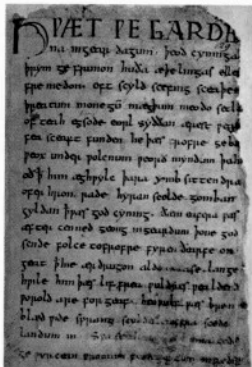 HǷÆT ǷE GARDE
na ingear dagum . þeod cyninga
þrym ge frunon huða æþelingas elle
fre medon. oft scyld scefing sceaþe
þreatum monegū mægþum meodo setla
of teah egsode eorl syððan ærest ƿear
fea sceaft funden he þæs frofre geba
ƿeox under ƿolcnum ƿeorð myndum þah
oð þ him æghƿylc þara ymb sittendra
ofer hron rade hyran scolde gomban
gyldan þ ƿæs god cyning. ðæm eafera ƿæs
æfter cenned geong in geardum þone god
sende folce tofrofre fyren ðearfe on
geat þ hie ær drugon aldor ase. lange
hƿile him þæs lif frea ƿuldres ƿealdend
ƿorold are for geaf. beoƿulf ƿæs breme
blæd ƿide sprang scyldes eafera scede
landum in.
ge ƿyrcean fromum feoh giftum